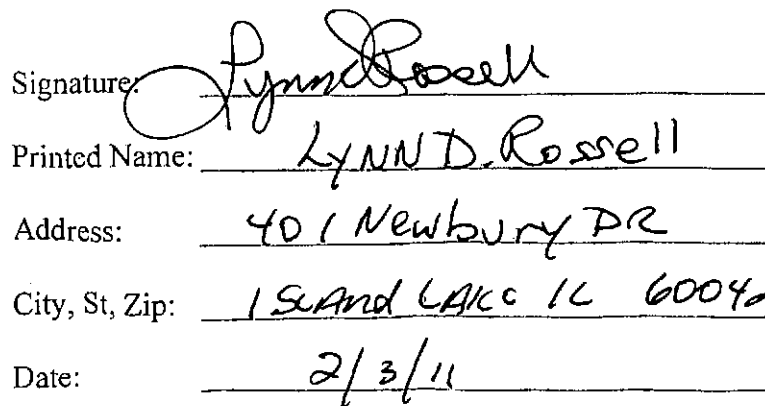 Signature: Lynn D Rossell
Printed Name: LyNN D. Rossell
Address: 401 Newbury DR
City, St, Zip: ISLAnd LAKe IL 60042
Date: 2/3/11